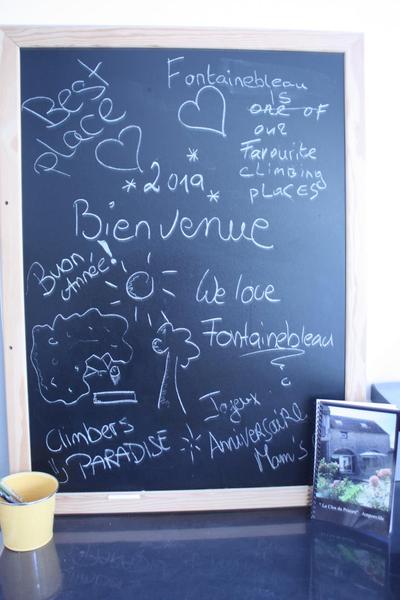 Best
Place
Fontainebleau
IS
ONE OF
our
Favourite
climbing
places
2019
Bienvenue
Buon
Année!
We love
Fontainebleau
Climbers
PARADISE
Joyeux
Anniversaire
Mam's
"Le Clos du Prieuré" Amponville